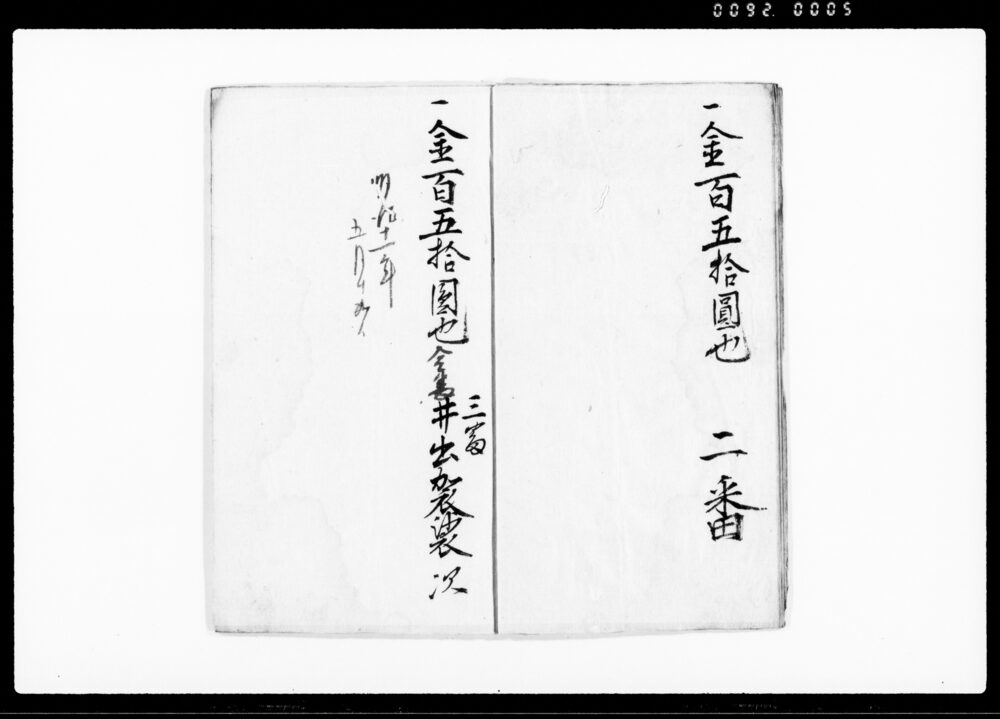 0092 0005
一金百五拾圓也　二番
一金百五拾圓也
三番
井出袈裟次
明治十一年
五月